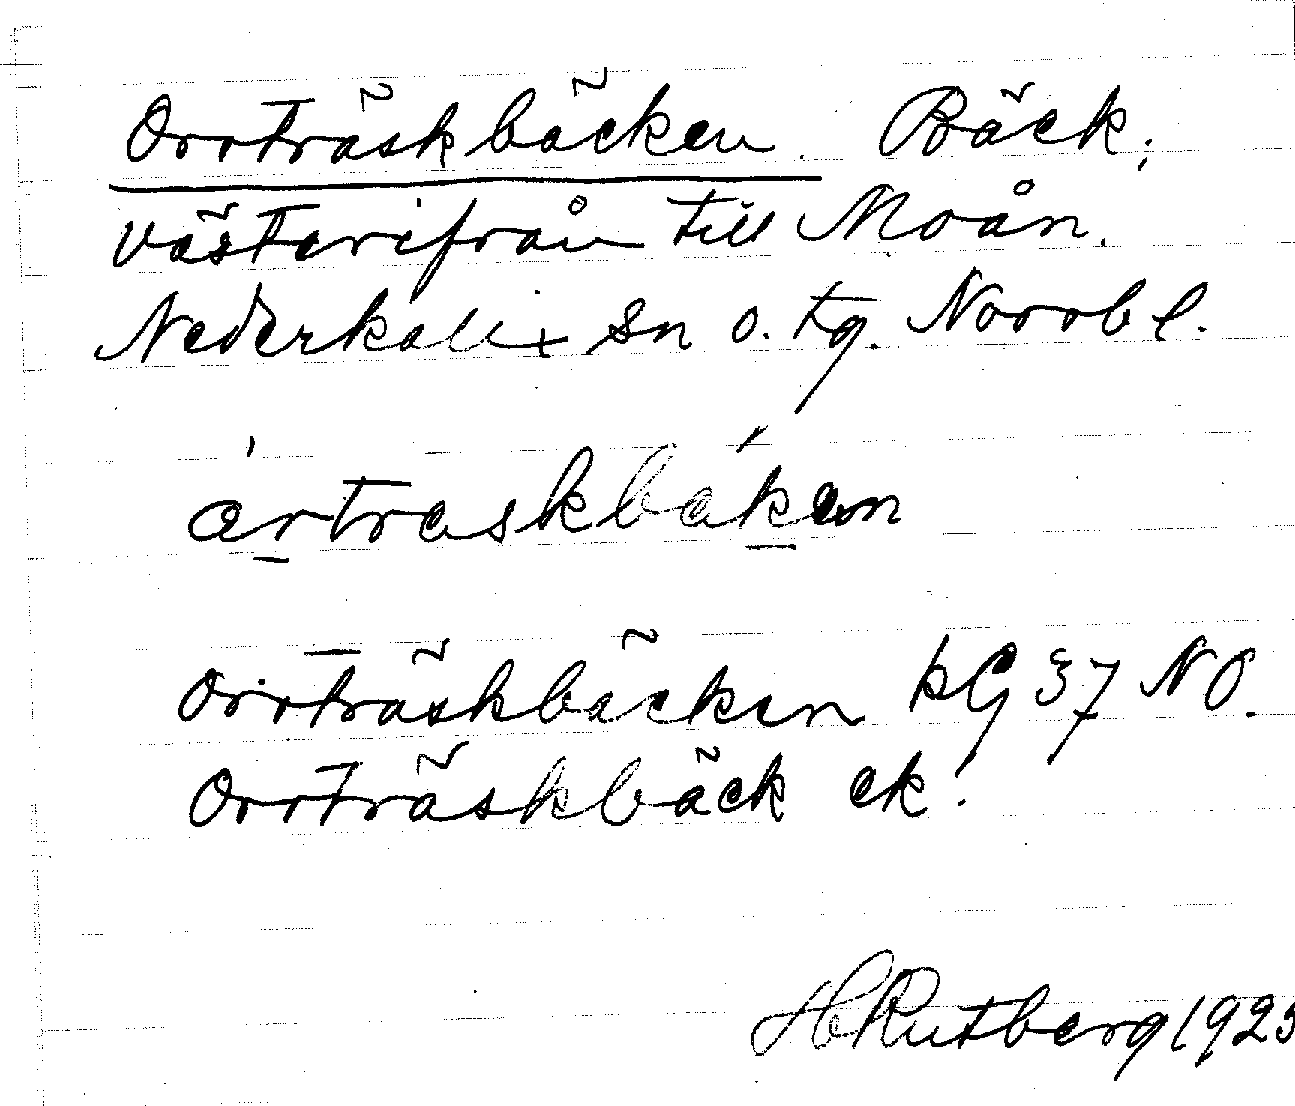 Orrträskbäcken. Bäck;
västerifrån till Moån.
Nederkalix sn o. tg. Norrb l.
årtraskbäken
Orrträskbäcken kG 37 NO.
Orrträskbäck ek.
H Rutberg 1925